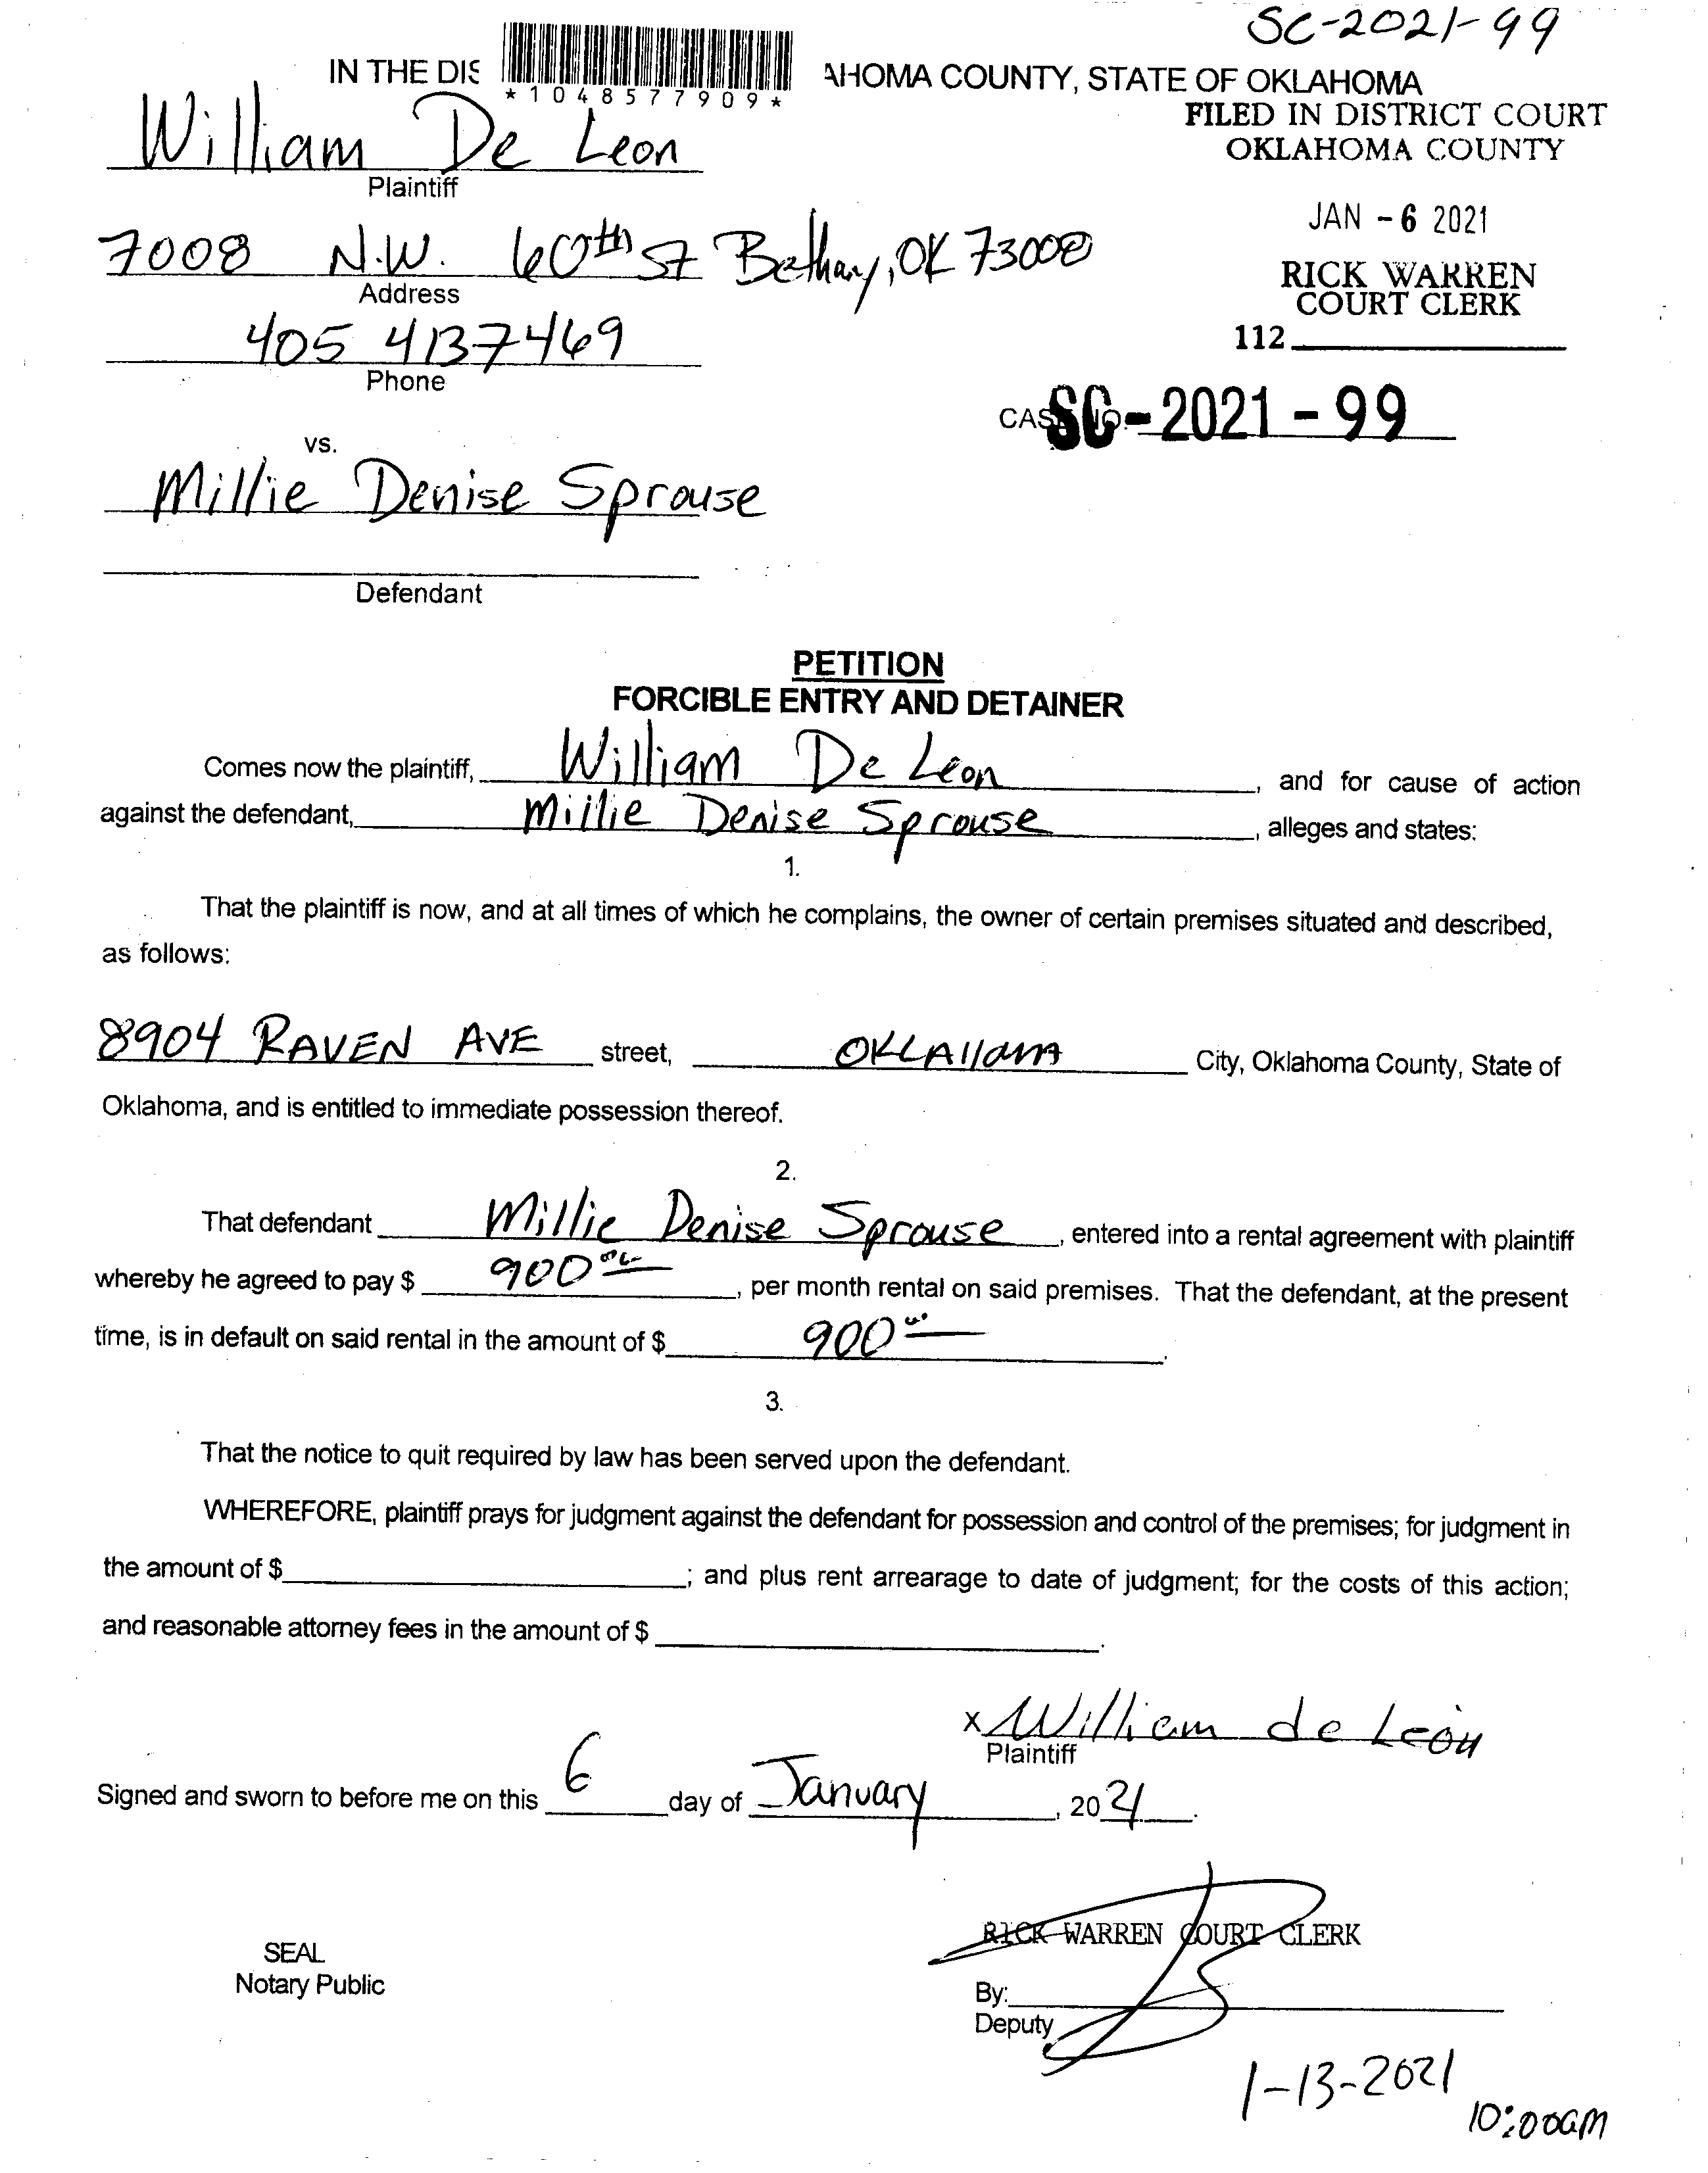 SC-2021-99
IN THE DIS
*1048577909*
AHOMA COUNTY, STATE OF OKLAHOMA
FILED IN DISTRICT COURT
OKLAHOMA COUNTY
William De Leon
Plaintiff
JAN - 6 2021
7008 N.W. 60th St Bethany, OK 73008
Address
RICK WARREN
COURT CLERK
405 4137469
Phone
112
CASE NO. SC - 2021 - 99
vs.
Millie Denise Sprouse
Defendant
PETITION
FORCIBLE ENTRY AND DETAINER
Comes now the plaintiff, William De Leon, and for cause of action
against the defendant, Millie Denise Sprouse, alleges and states:
1.
That the plaintiff is now, and at all times of which he complains, the owner of certain premises situated and described,
as follows:
8904 RAVEN AVE street, OKLAHOMA City, Oklahoma County, State of
Oklahoma, and is entitled to immediate possession thereof.
2.
That defendant Millie Denise Sprouse, entered into a rental agreement with plaintiff
whereby he agreed to pay $ 900, per month rental on said premises. That the defendant, at the present
time, is in default on said rental in the amount of $ 900.
3.
That the notice to quit required by law has been served upon the defendant.
WHEREFORE, plaintiff prays for judgment against the defendant for possession and control of the premises; for judgment in
the amount of $ ; and plus rent arrearage to date of judgment; for the costs of this action;
and reasonable attorney fees in the amount of $ .
x William de León
Plaintiff
Signed and sworn to before me on this 6 day of January, 2021.
RICK WARREN COURT CLERK
SEAL
Notary Public
By:
Deputy
1-13-2021
10:00am